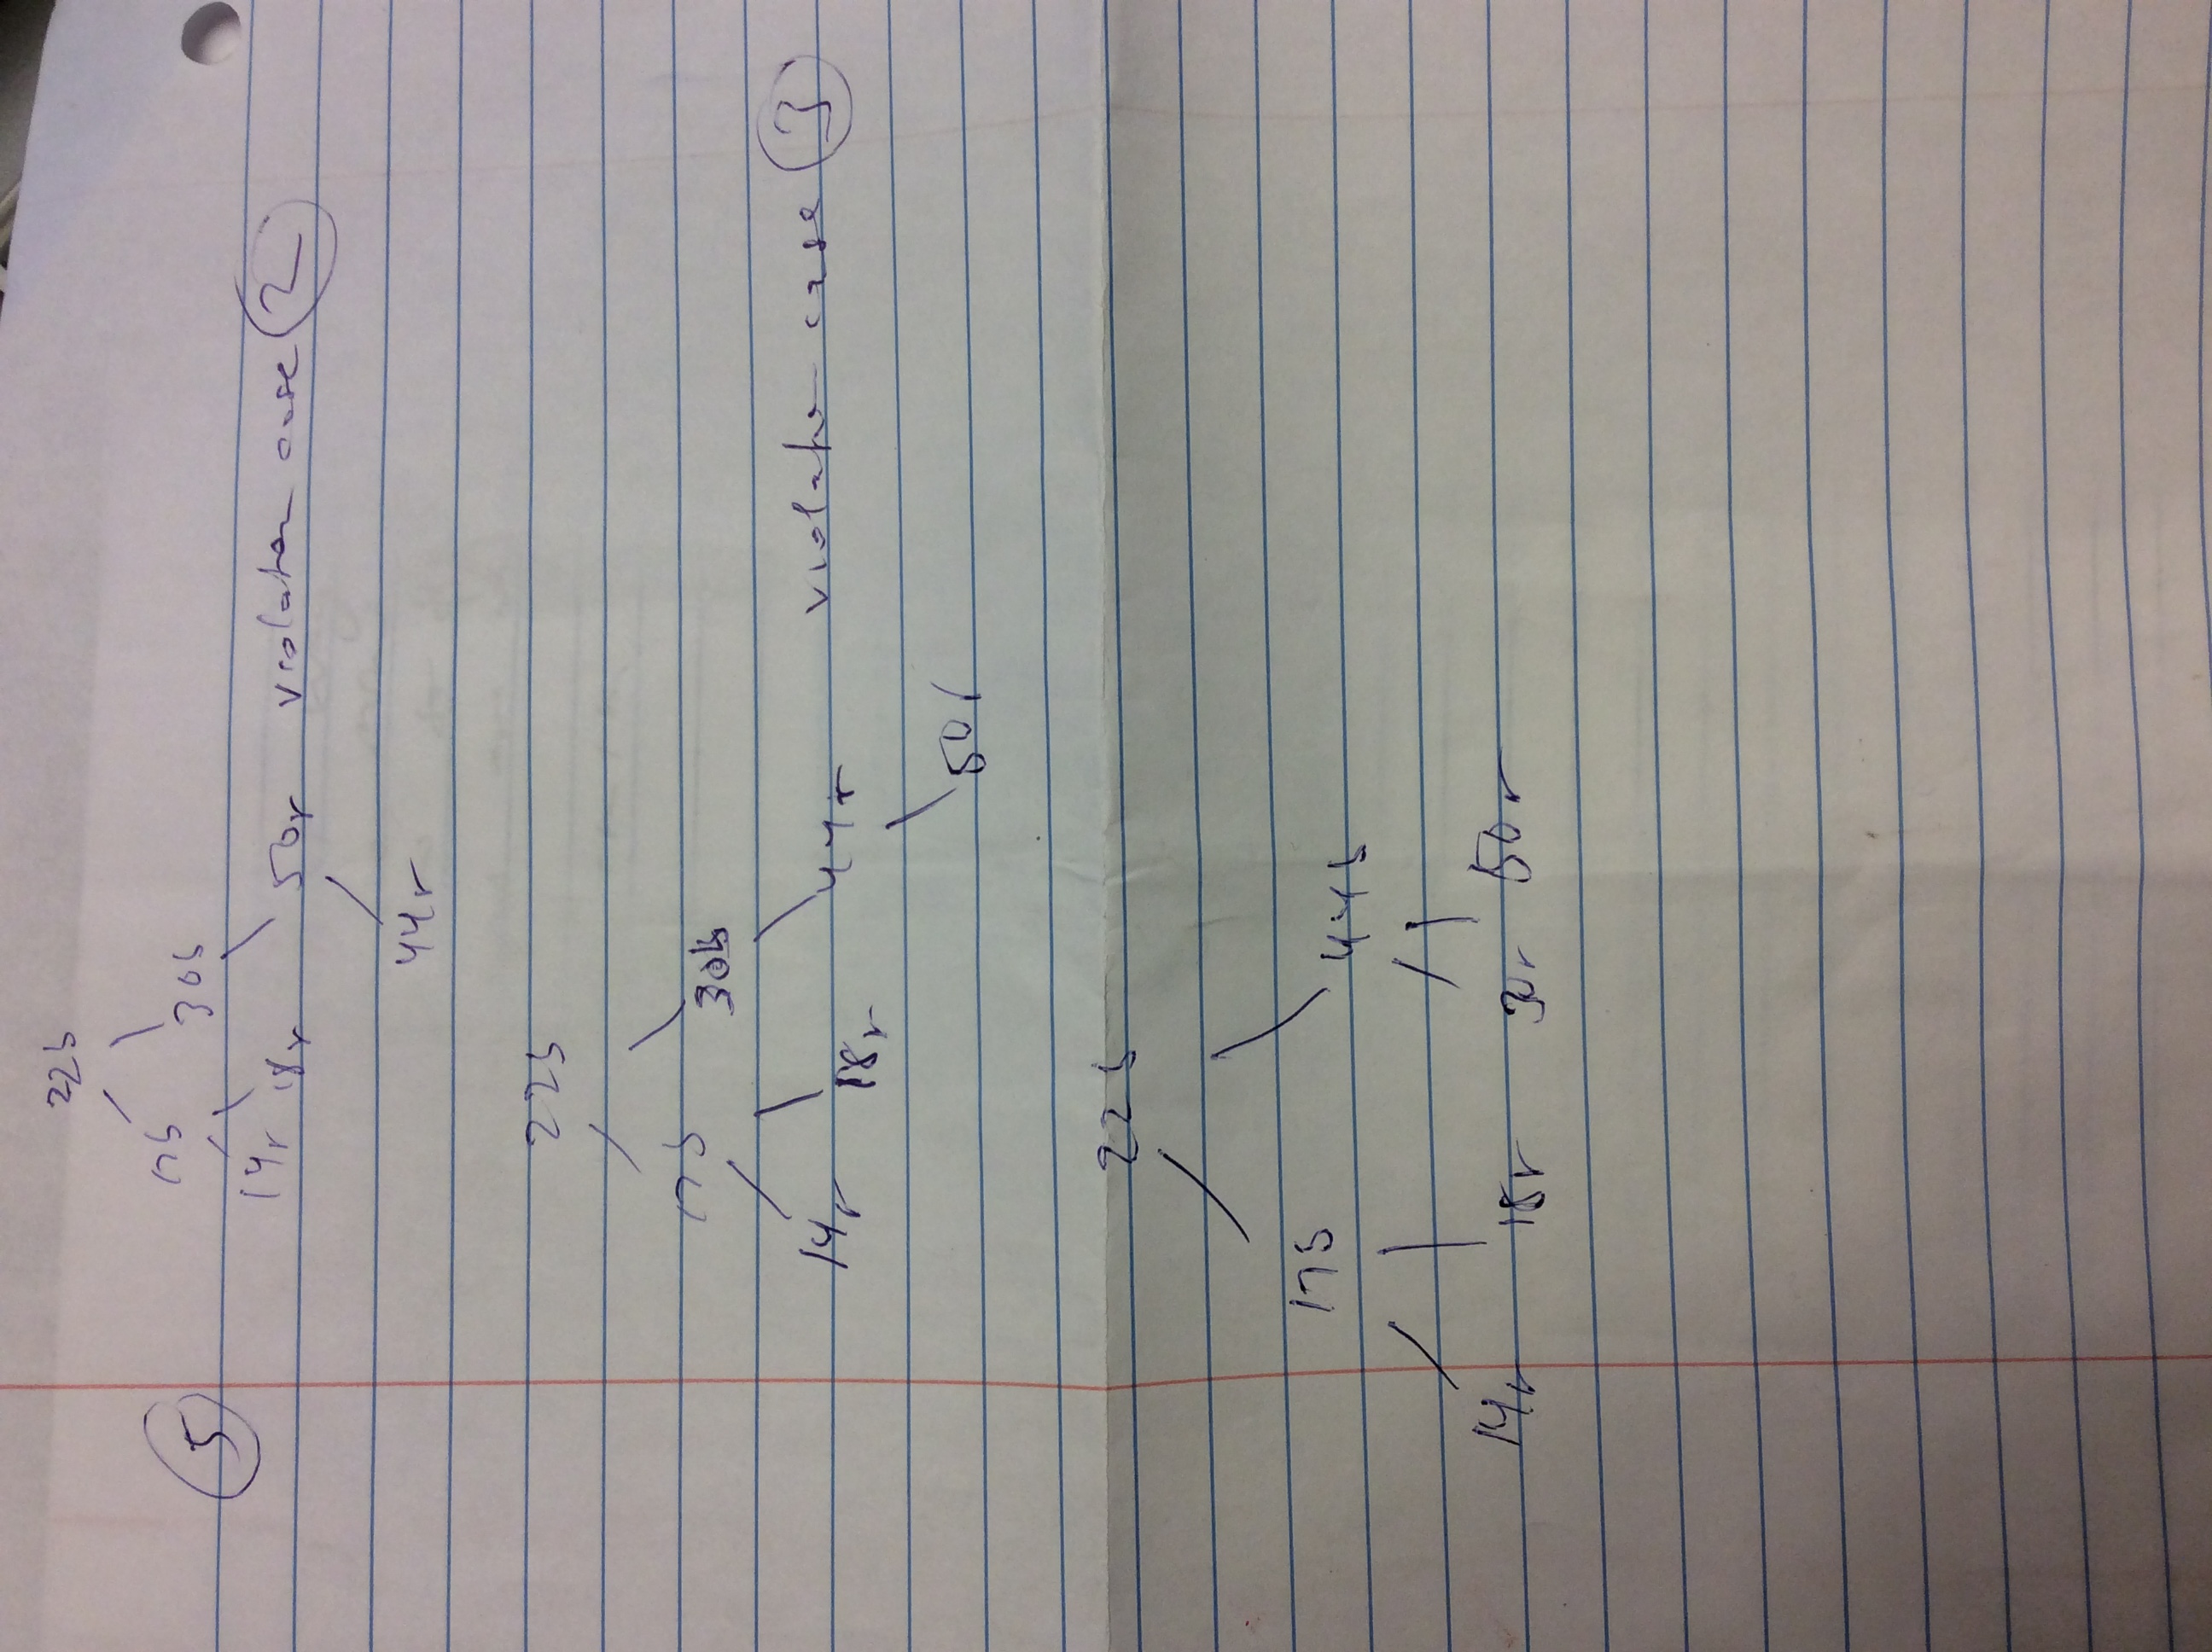 22b
⑤ 17b 30b
14r 18r 50r violation case ②
44r
22b
17b 30b
14r 18r 44r violation case ③
50r
22b
17b 44b
14r 18r 30r 50r